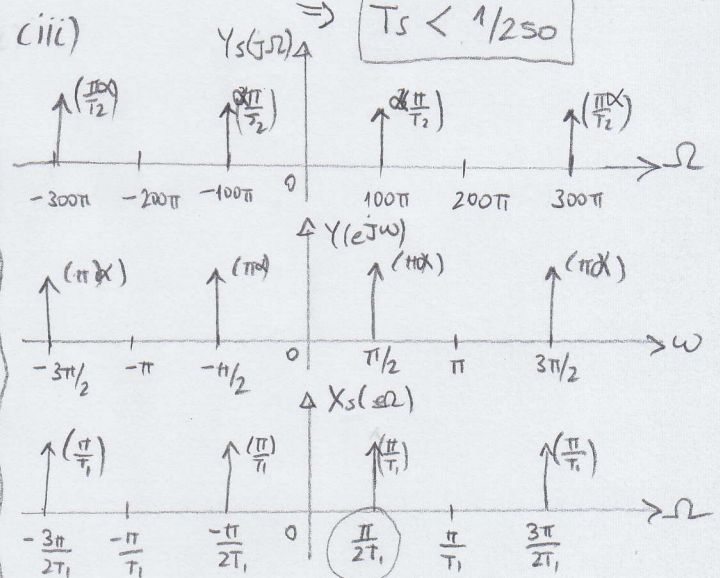 (iii)
⇒ Ts < 1/250
Ys(jΩ)
(πα/T2) (απ/T2) α(π/T2) (πα/T2)
-300π -200π -100π 0 100π 200π 300π Ω
Y(e^jω)
(π)α) (πα) (πα) (πα)
-3π/2 -π -π/2 0 π/2 π 3π/2 ω
Xs(Ω)
(π/T1) (π/T1) (π/T1) (π/T1)
-3π/2T1 -π/T1 -π/2T1 0 π/2T1 π/T1 3π/2T1 Ω